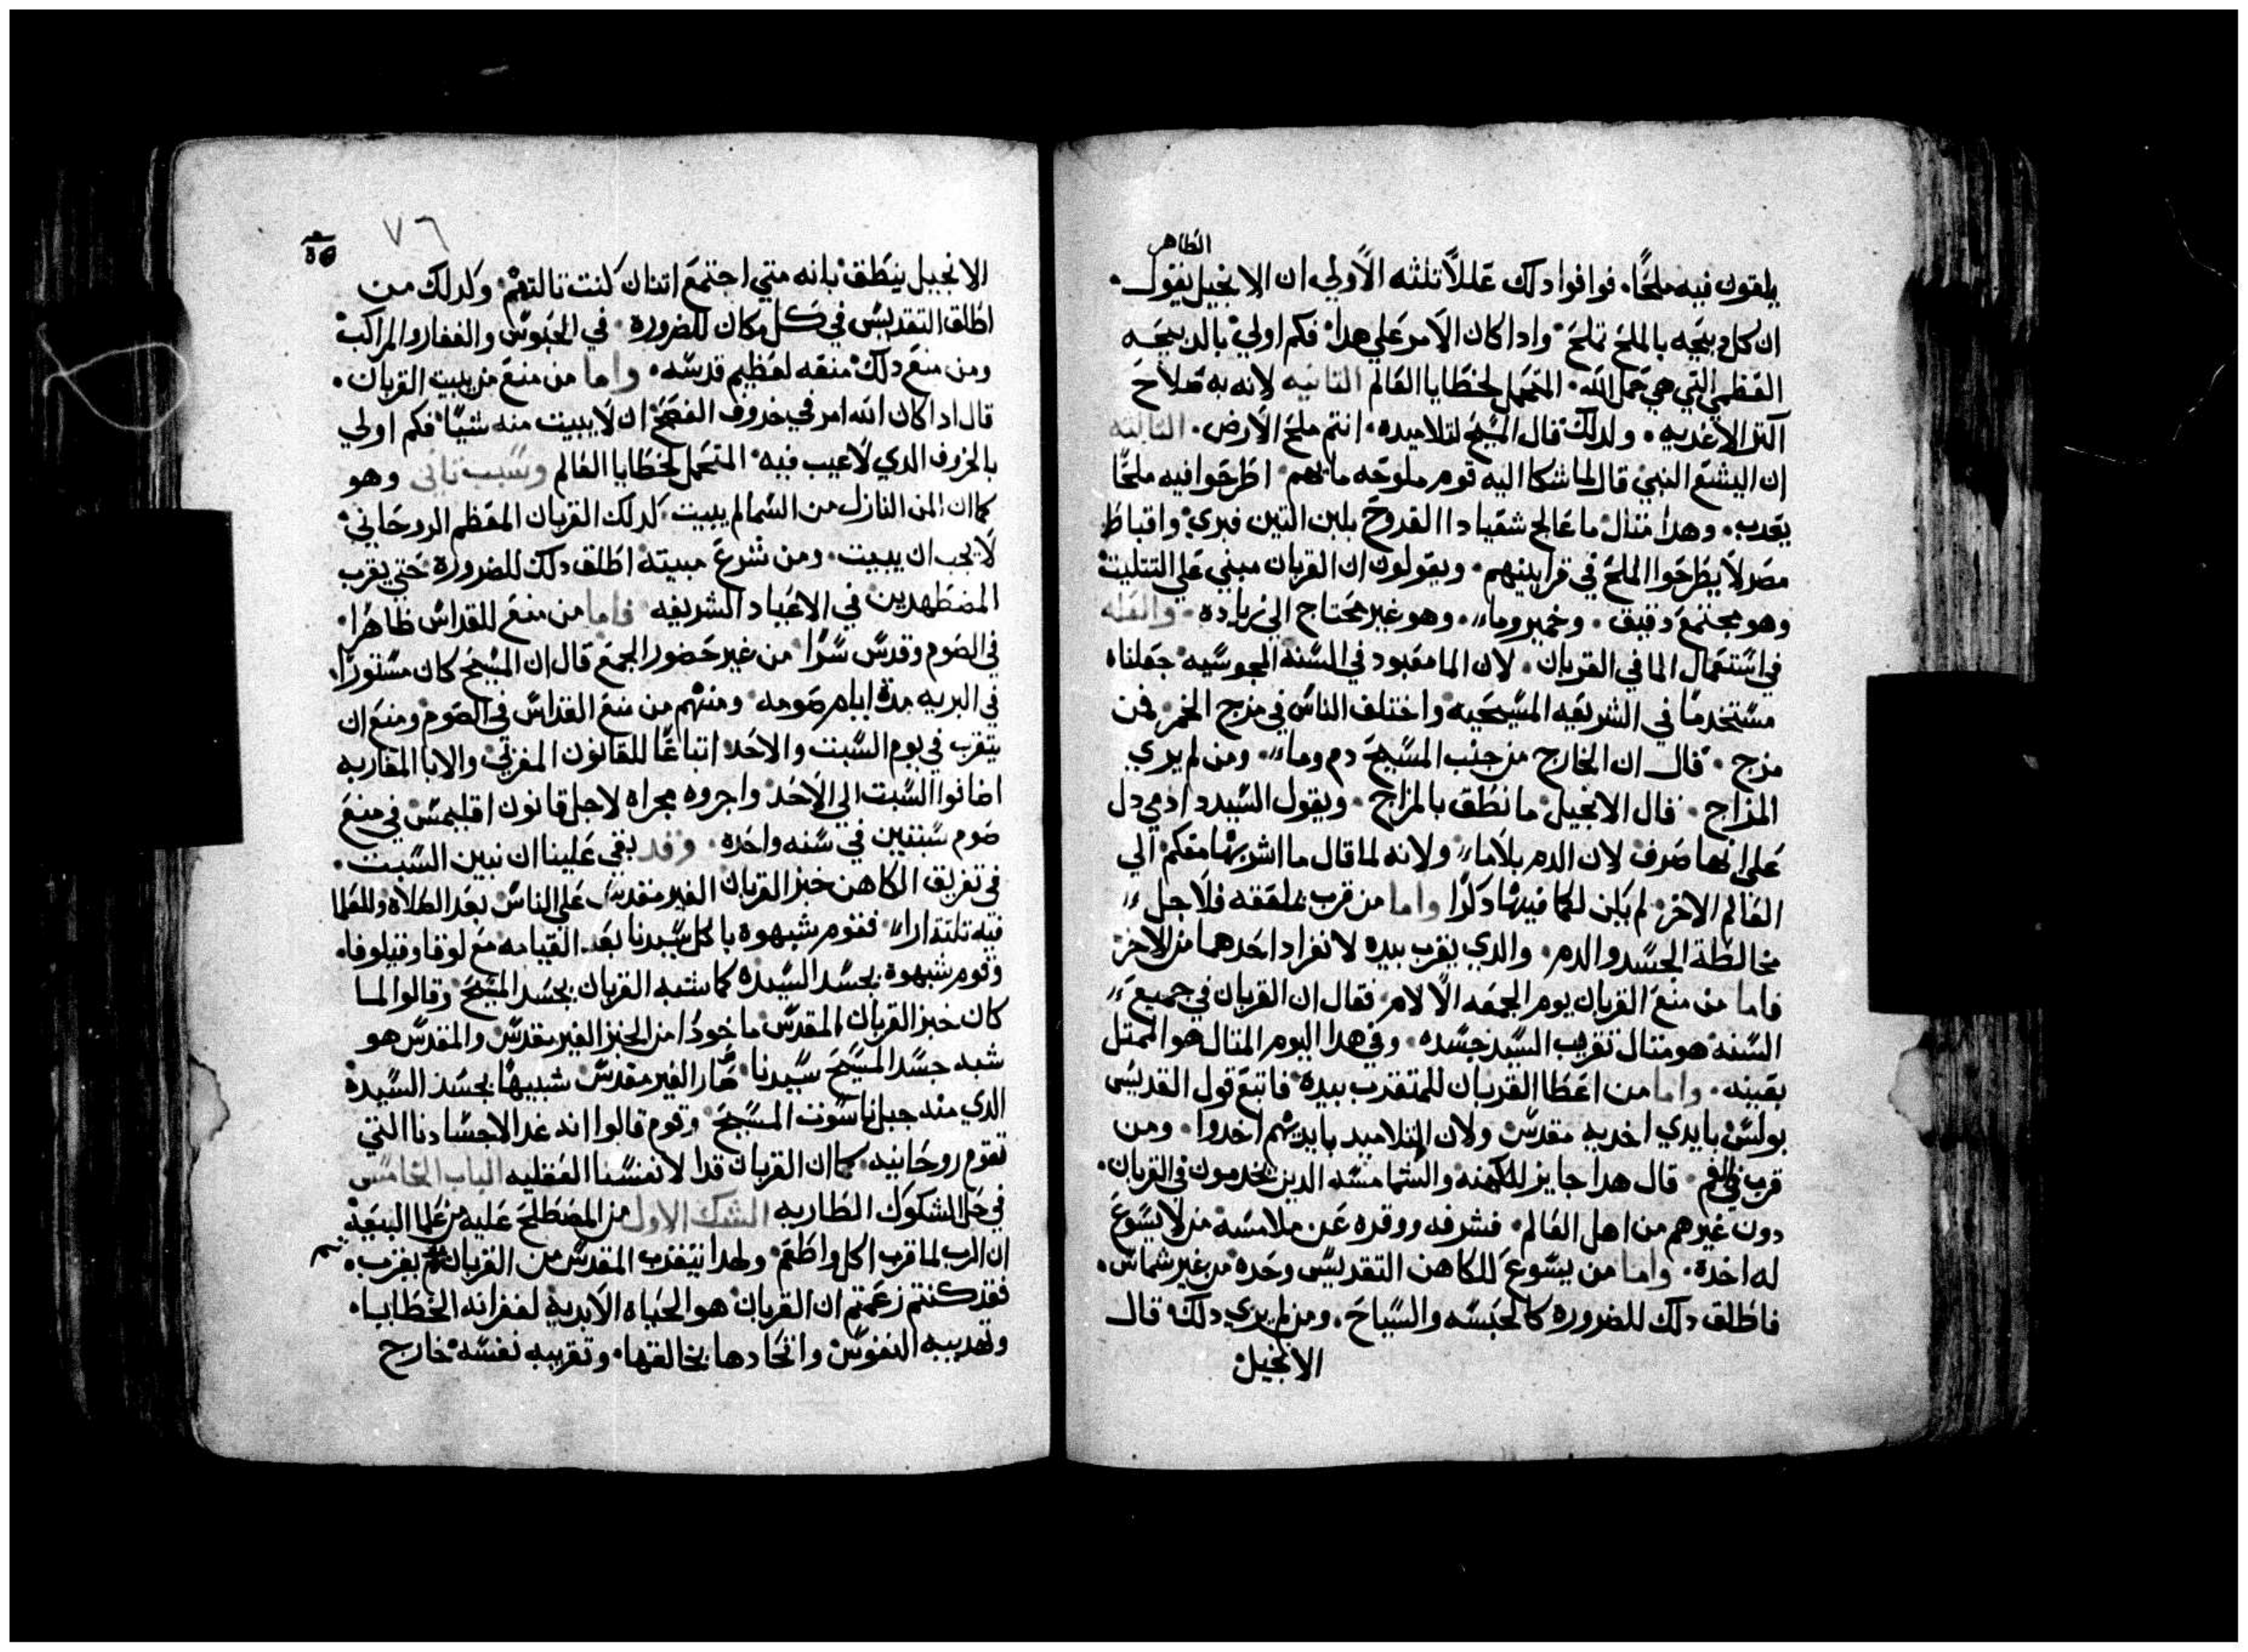 الطاهر
يلقون فيه ملحًا. فوافوا دلك عللاً تلته الاولي ان الانجيل يقول.
ان كل دبيحه بالملح تملح. وادا كان الامر علي هدا. فكم اولي بالدبيحه
العظمي التي هي حمل الله. المتحمل لخطايا العالم التانيه لانه به صلاح
اكتر الاغديه. ولدلك قال المسيح لتلاميده. انتم ملح الارض. التالته
ان اليشع النبي قال لما شكا اليه قوم ملوحه مايهم. اطرحوا فيه ملحًا
يعدب. وهدا متال ما عالج شعيا دا القروح بلبن التين فبري. واقباط
مصر لا يطرحوا الملح في قرابينهم. ويقولون ان القربان مبني علي التتليت
وهو مجتمع دقيق. وخمير وماء. وهو غير محتاج الي زياده. والعله
في استعمال الما في القربان. لان الما معبود في السنه المجوسيه جعلناه
مستخدمًا في الشريعه المسيحيه واختلف الناس في مزج الخمر. فمن
مزج. قال ان الخارج من جنب المسيح دم وماء. ومن لم يري
المزاج. قال الانجيل ما نطق بالمزاج. ويقول السيد دا دمي دل
علي انها صرف لان الدم بلا ماء ولانه لما قال ما اشربها معكم الي
العالم الاخر. لم يكن للما فيها دكرًا واما من قرب بملعقه فلاجل
مخالطة الجسد والدم. والدي يقرب بيده لانفراد احدهما من الاخر
فاما من منع القربان يوم الجمعه الالام. فقال ان القربان في جميع
السنه هو متال تقريب السيد جسده. وفي هدا اليوم المتال هو الممتل
بعينه. واما من اعطا القربان للمتقرب بيده. فاتبع قول القديس
بولس بايدي اخديه مقدس ولان التلاميد بايديهم اخدوا. ومن
قرب في الفم. قال هدا جايز للكهنه والشمامسه الدين يخدمون في القربان.
دون غيرهم من اهل العالم. فشرفه ووقره عن ملامسة من لا يسوغ
له اخده. واما من يسوغ للكاهن التقديس وحده من غير شماس.
فاطلق دلك للضروره كالحبسه والسياح. ومن لم يري دلك قال
الانجيل
٧٦
الانجيل ينطق بانه متي اجتمع اتنان كنت تالتهم. وكدلك من
اطلق التقديس في كل مكان للضرورة. في الحبوس والقفار والمراكب
ومن منع دلك منعه لعظيم قدسه. واما من منع من بيت القربان.
قال ادا كان الله امر في خروف الفصح ان لا يبيت منه شيًا. فكم اولي
بالخروف الدي لا عيب فيه. المتحمل لخطايا العالم وسبب تاني وهو
كما ان المن النازل من السما لم يبيت. كدلك القربان المعظم الروحاني
لا يجب ان يبيت. ومن شرع مبيته اطلق دلك للضرورة. حتي يقرب
المضطهدين في الاعياد الشريفه فاما من منع للقداس ظاهرا.
في الصوم وقدس سرًا. من غير حضور الجمع قال ان المسيح كان مستورًا.
في البريه مدة ايام صومه. ومنهم من منع القداس في الصوم ومنع ان
يتقرب في يوم السبت والاحد. اتباعًا للقانون المغربي. والابا المغاربه
اضافوا السبت الي الاحد. واجروه مجراه لاجل قانون اقليمس في منع
صوم سبتين في سنه واحده. وقد بقي علينا ان نبين السبب.
في تفريق الكاهن خبز القربان الغير مقدس علي الناس بعد الصلاه وللعلما
فيه تلتة اراء. فقوم شبهوة باكل سيدنا بعد القيامه مع لوقا وقيلوفا.
وقوم شبهوة بجسد السيده كما شبه القربان بجسد المسيح. وقالوا لما
كان خبز القربان المقدس ماخودًا من الخبز الغير مقدس والمقدس هو
شبه جسد المسيح سيدنا صار الغير مقدس شبيهًا بجسد السيدة
الدي منه جبل ناسوت المسيح. وقوم قالوا انه غدا لاجسادنا التي
تقوم روحانيه. كما ان القربان غدا لانفسنا العقليه الباب الخامس
في حل الشكوك الطاريه الشك الاول من المصطلح عليه من علما البيعه
ان الرب لما قرب اكل واطعم. ولهدا يتقرب المقدس من القربان تم يقرب.
فقد كنتم زعمتم ان القربان هو الحياه الابدية لغفرانه الخطايا.
وتهديبه النفوس واتحادها بخالقها. وتقريبه نفسه خارج